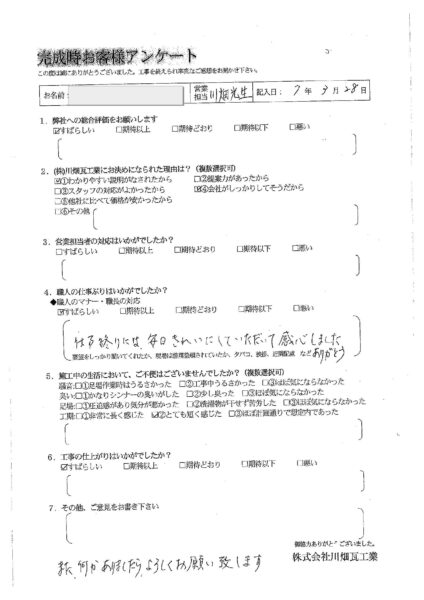 完成時お客様アンケート
この度は誠にありがとうございました。工事を終えられ率直なご感想をお聞かせ下さい。
お名前: 営業担当 川畑光生 記入日: 7年 9月 28日
1. 弊社への総合評価をお願いします
☑すばらしい □期待以上 □期待どおり □期待以下 □悪い
2. (株)川畑瓦工業にお決めになられた理由は?(複数選択可)
☑①わかりやすい説明がなされたから □②提案力があったから
□③スタッフの対応がよかったから ☑④会社がしっかりしてそうだから
□⑤他社に比べて価格が安かったから
□⑥その他
3. 営業担当者の対応はいかがでしたか?
□すばらしい □期待以上 □期待どおり □期待以下 □悪い
4. 職人の仕事ぶりはいかがでしたか?
◆職人のマナー・職長の対応
☑すばらしい □期待以上 □期待どおり □期待以下 □悪い
仕事終りには、毎日きれいにしていただいて感心しました
要望をしっかり聞いてくれたか、現場は整理整頓されていたか、タバコ、挨拶、近隣配慮 など ありがとう
5. 施工中の生活において、ご不便はございませんでしたか?(複数選択可)
騒音:□①足場作業時はうるさかった □②工事中うるさかった □③ほぼ気にならなかった
臭い:□①かなりシンナーの臭いがした □②少し臭った □③ほぼ気にならなかった
足場:□①圧迫感があり気分が悪かった □②洗濯物が干せず苦労した □③ほぼ気にならなかった
工期:□①非常に長く感じた ☑②とても短く感じた □③ほぼ計画通りで想定内であった
6. 工事の仕上がりはいかがでしたか?
☑すばらしい □期待以上 □期待どおり □期待以下 □悪い
7. その他、ご意見をお書き下さい
御協力ありがとうございました。
株式会社川畑瓦工業
また、何かありましたら、よろしくお願い致します